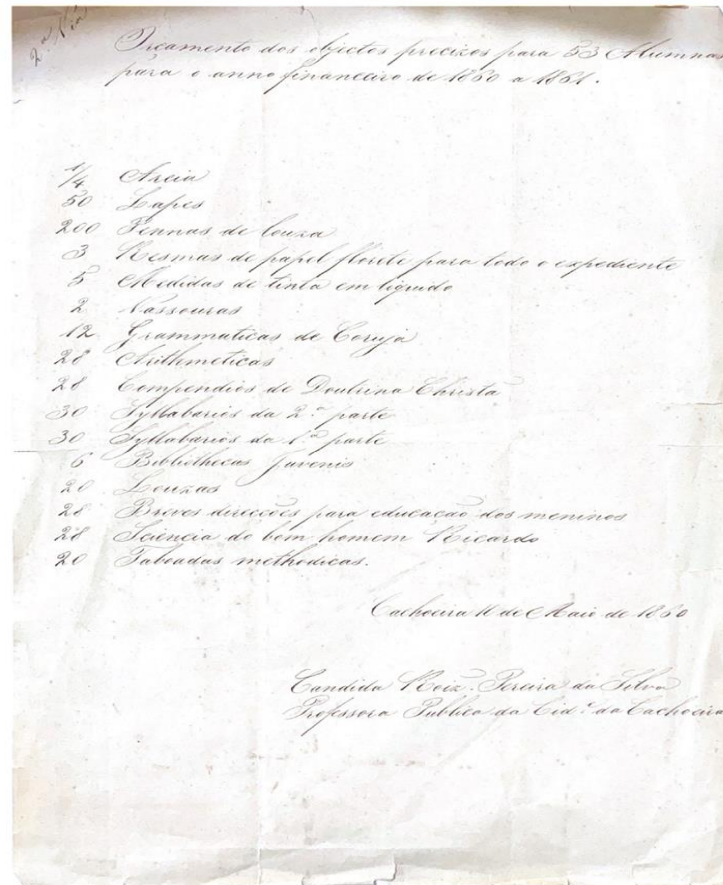 2ª Via
Orçamento dos objectos precizos para 53 Alumnas
para o anno financeiro de 1860 a 1861.
1/4 Areia
50 Lapes
200 Pennas de louza
3 Resmas de papel florete para todo o expediente
5 Medidas de tinta em liquido
2 Vassouras
12 Grammaticas de Coruja
28 Arithmeticas
28 Compendios de Doutrina Christã
30 Syllabarios da 2.ª parte
30 Syllabarios da 1.ª parte
6 Bibliothecas Juvenis
20 Louzas
28 Breves direcções para educação dos meninos
28 Sciencia do bom homem Ricardo
20 Taboadas methodicas.
Cachoeira 11 de Maio de 1860
Candida Roiz. Pereira da Silva
Professora Publica da Cid.e da Cachoeira